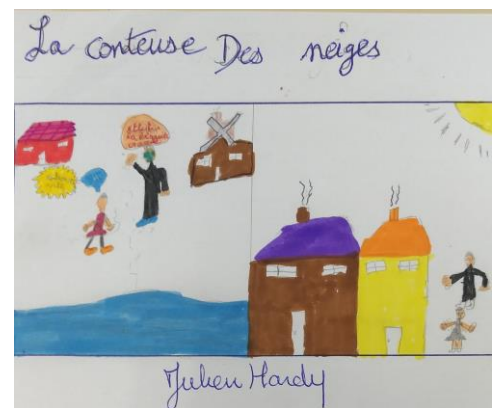 La conteuse Des neiges
Julien Hardy